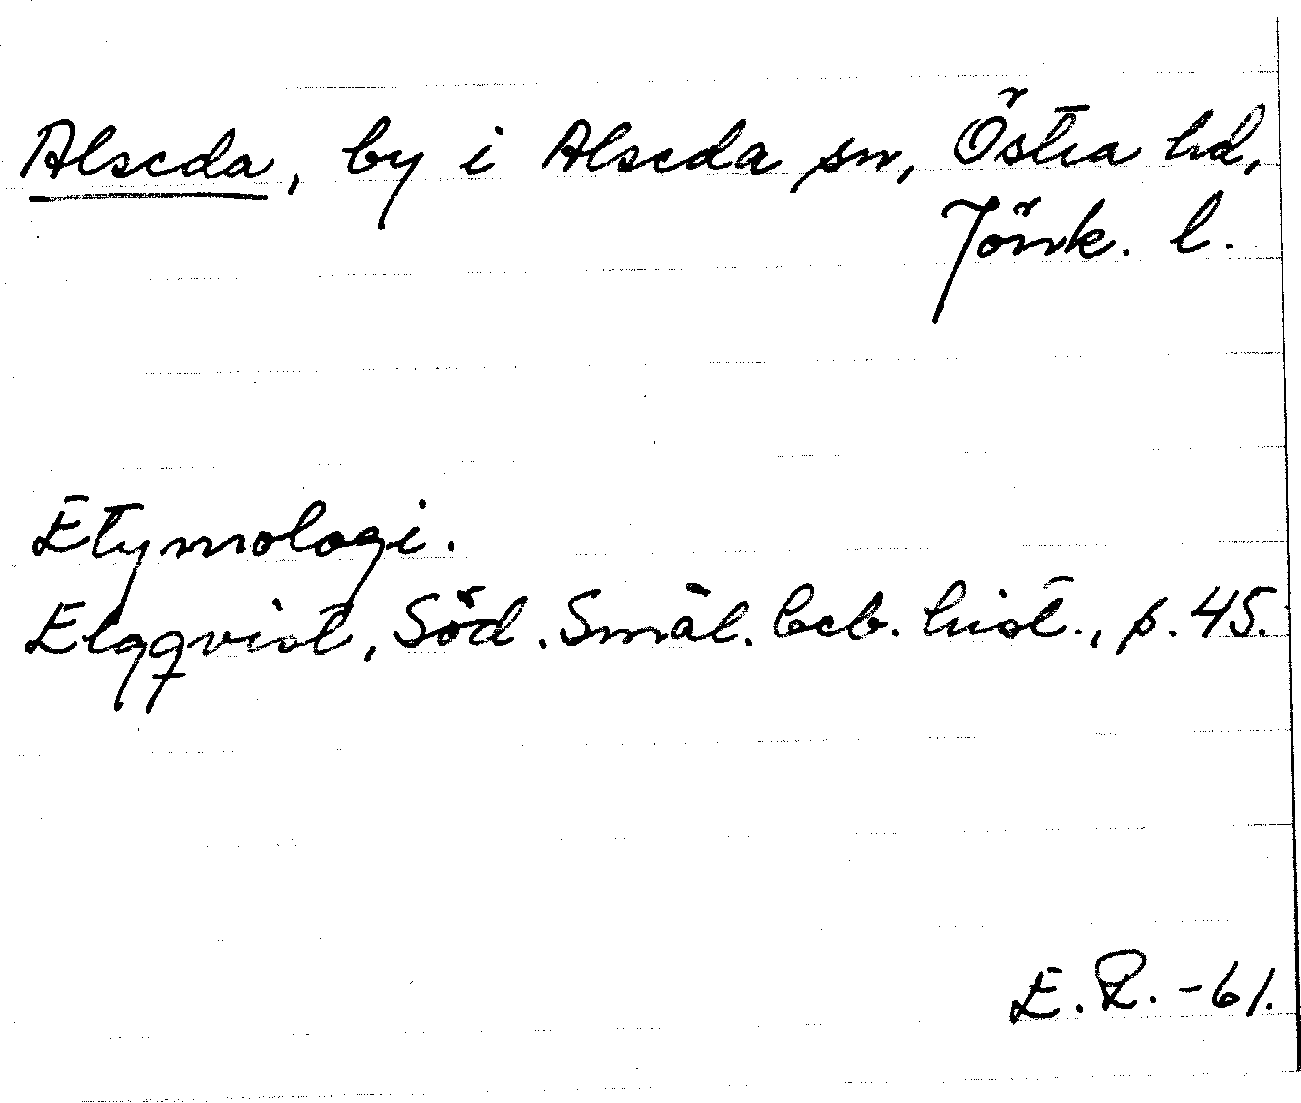 Alseda, by i Alseda sn, Östra hd,
Jönk. l.
Etymologi.
Elgqvist, Söd. Smål. beb. hist., p. 45.
E. R. -61.